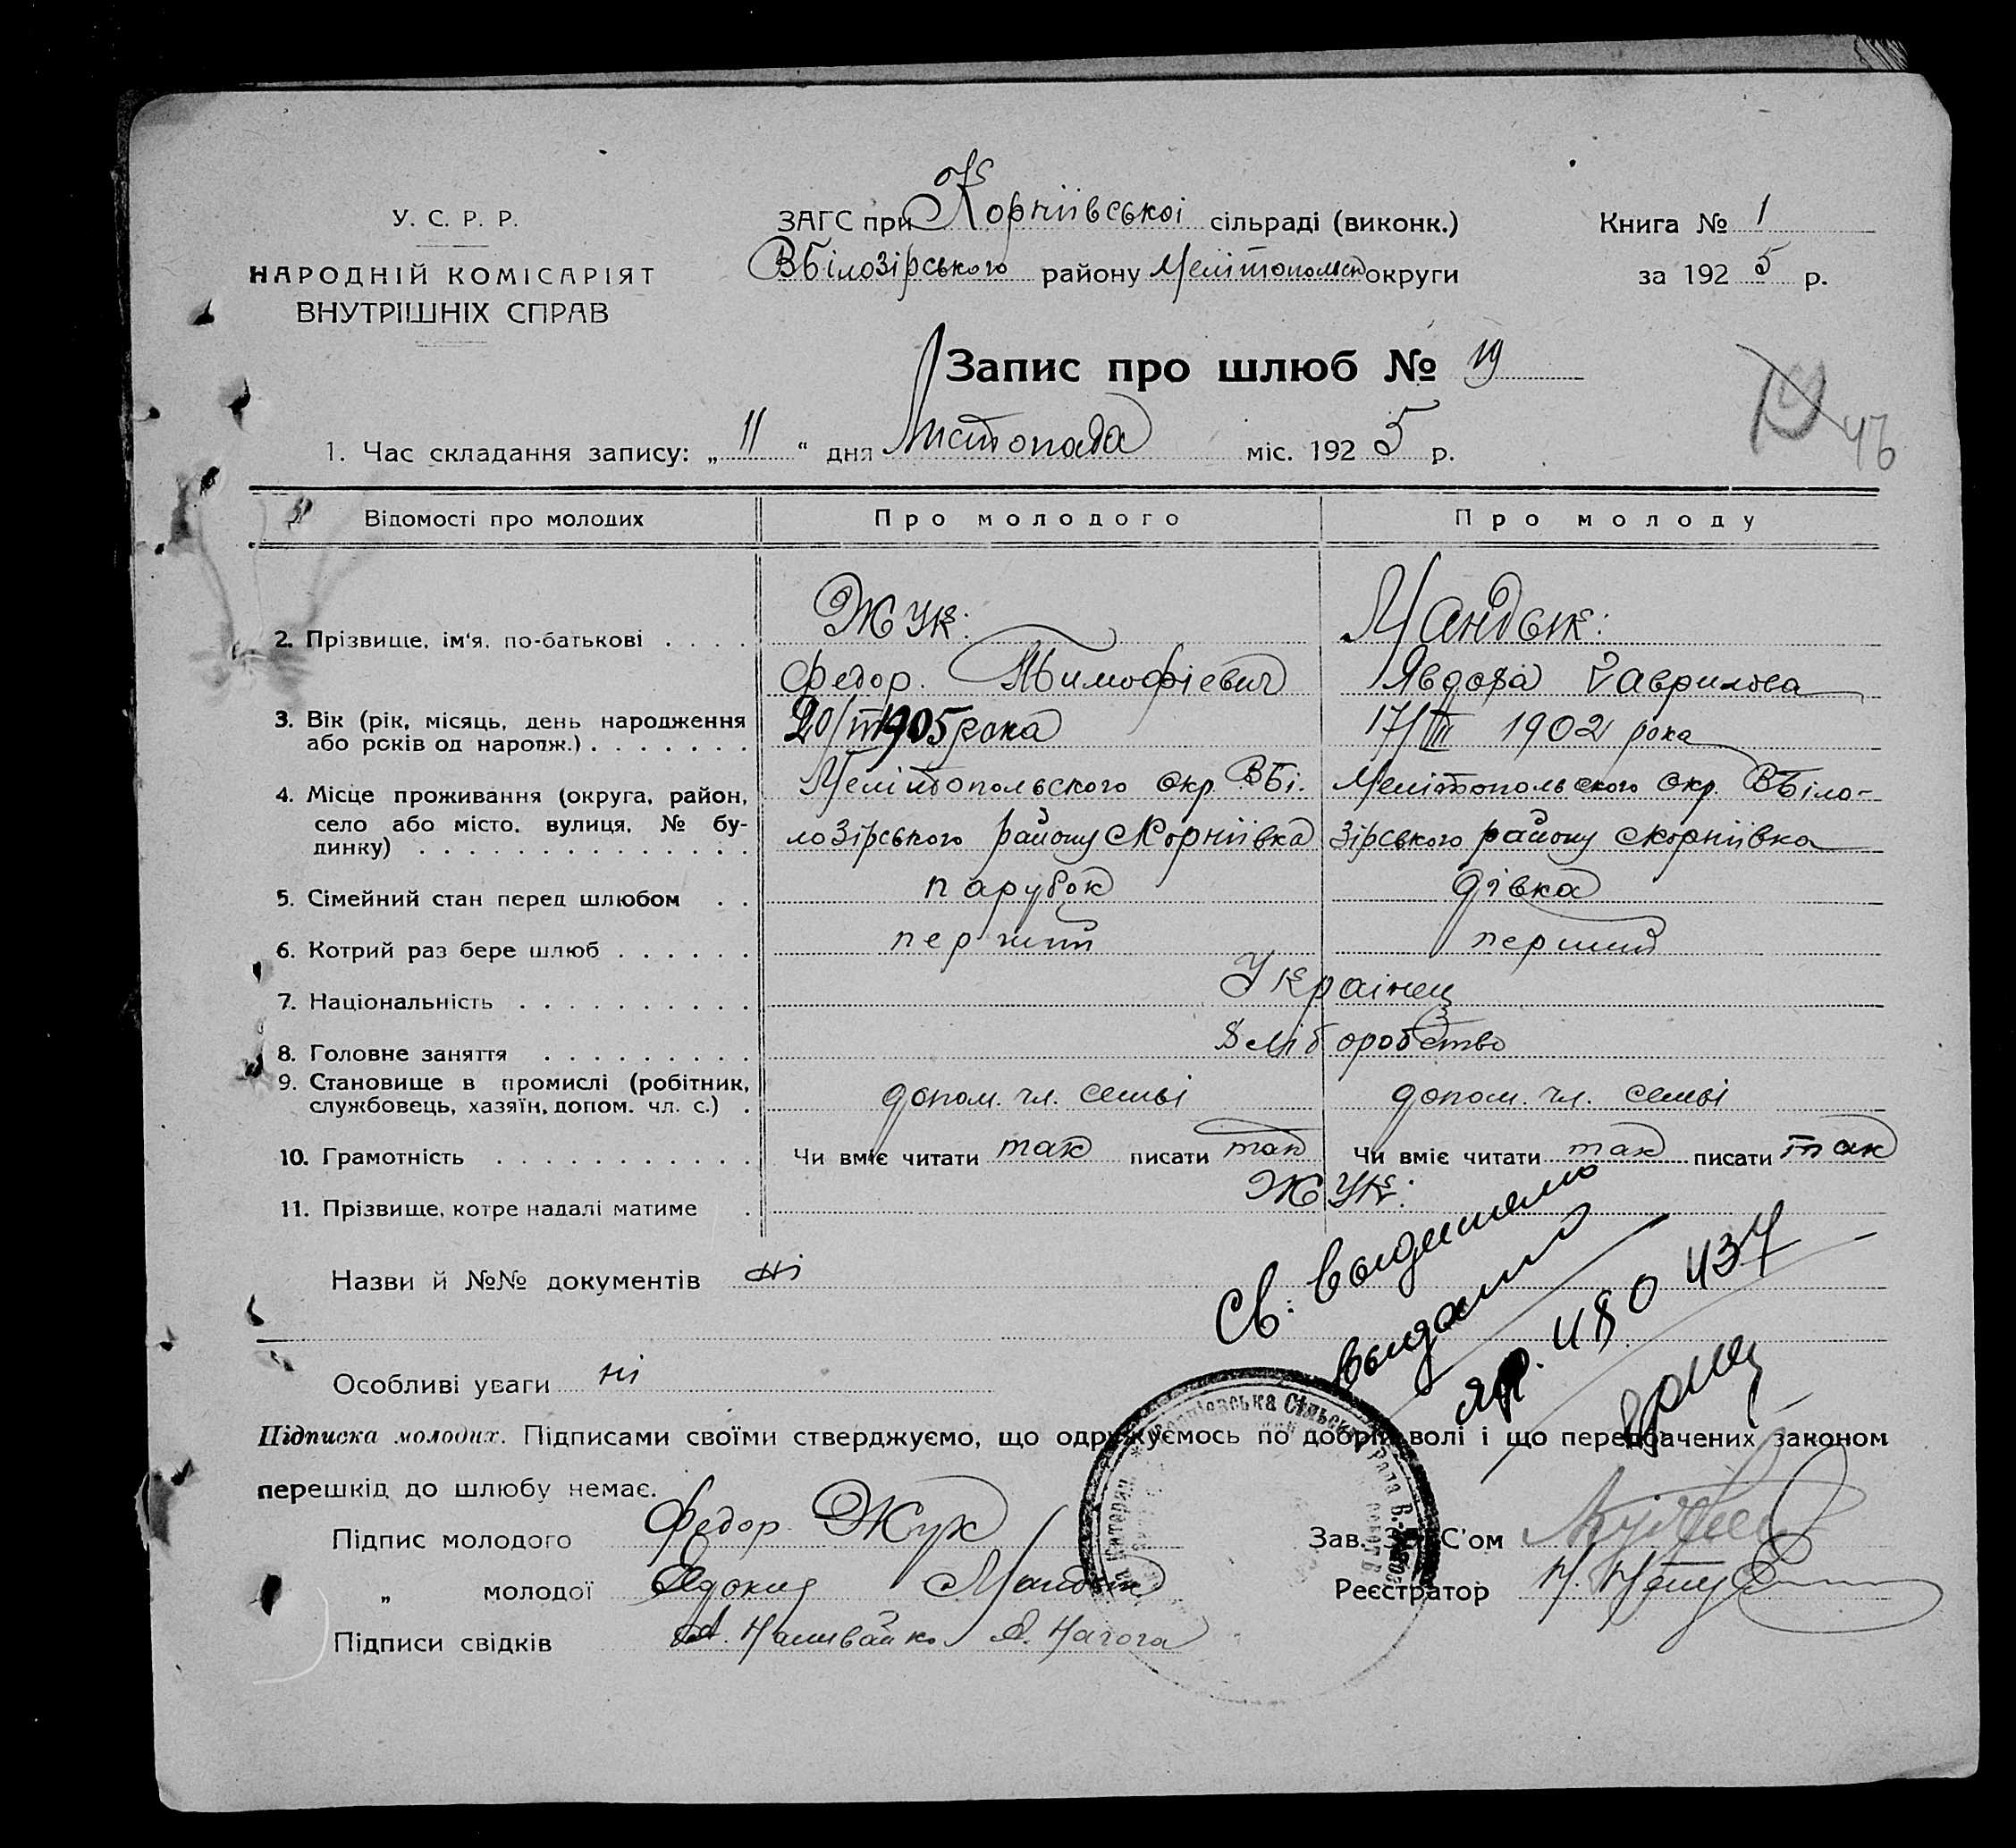 У. С. Р. Р.
НАРОДНІЙ КОМІСАРІЯТ
ВНУТРІШНІХ СПРАВ
ЗАГС при Корніівськоі сільраді (виконк.)
ВБілозірського району Мелітопольск округи
Книга № 1
за 1925 р.
Запис про шлюб № 19
46
1. Час складання запису: „11“ дня Листопада міс. 1925 р.
Відомості про молодих Про молодого Про молоду
2. Прізвище, ім'я, по-батькові . . . . Жук: Мандык:
Федор. Тимофіевич Явдоха Гаврилова
3. Вік (рік, місяць, день народження або років од народж.) . . . . . . . 20/III 1905 рока 17/III 1902 рока
4. Місце проживання (округа, район, село або місто, вулиця, № будинку) . . . . . . . . . . . . . .
Мелітопольского Окр. ВБі- Мелітопольского Окр. ВБіло-
лозірського району с Корніівка зірського району с Корніівка
5. Сімейний стан перед шлюбом . . парубок дівка
6. Котрий раз бере шлюб . . . . . . перший перший
7. Національність . . . . . . . . . . Украінец
8. Головне заняття . . . . . . . . . Хліборобство
9. Становище в промислі (робітник, службовець, хазяїн, допом. чл. с.) . допом. чл. семьі допом. чл. семьі
10. Грамотність . . . . . . . . . . . Чи вміє читати так писати так Чи вміє читати так писати так
11. Прізвище, котре надалі матиме . Жук:
Назви й №№ документів ні
Св.
480 437
Особливі уваги ні
Підписка молодих. Підписами своїми стверджуємо, що одружуємось по добрій волі і що передбачених законом
перешкід до шлюбу немає.
Підпис молодого Федор Жук
Зав. ЗАГС'ом
„ молодої Явдокия Мандык
Реєстратор
Підписи свідків А. Наливайко А. Нагога
Сільська Рада